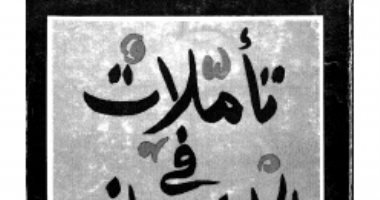 تأملات
في